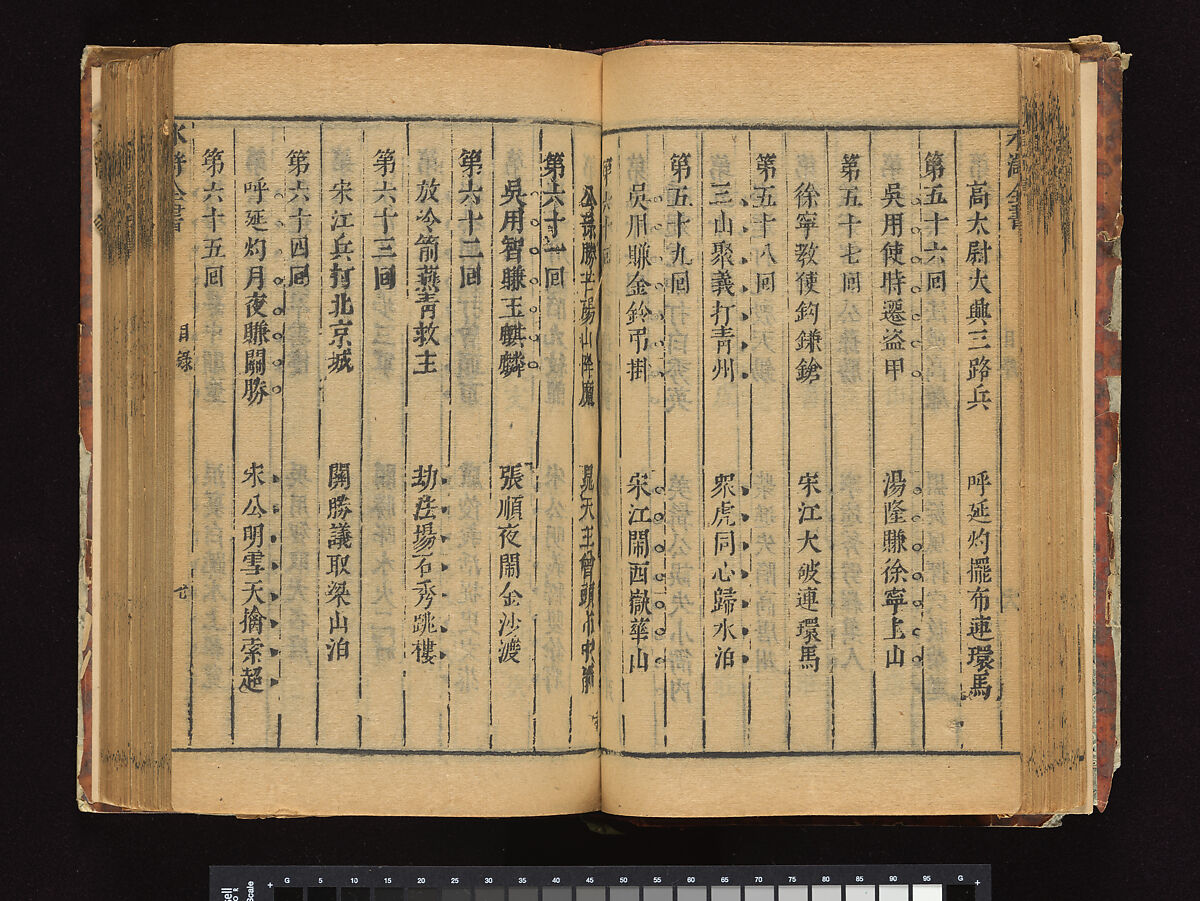 水滸全書
高太尉大興三路兵 呼延灼擺布連環馬
第五十六回
吳用使時遷盜甲 湯隆賺徐寧上山
第五十七回
徐寧教使鈎鎌鎗 宋江大破連環馬
第五十八回
三山聚義打青州 衆虎同心歸水泊
第五十九回
吳用賺金鈴吊掛 宋江鬧西嶽華山
第六十回
公孫勝芒碭山降魔 晁天王曾頭市中箭
第六十一回
吳用智賺玉麒麟 張順夜鬧金沙渡
第六十二回
放冷箭燕青救主 劫法塲石秀跳樓
第六十三回
宋江兵打北京城 關勝議取梁山泊
第六十四回
呼延灼月夜賺關勝 宋公明雪天擒索超
第六十五回
水滸全書 目錄 廿
G 5 10 15 20 25 30 35 40 45 50 55 60 65 70 75 80 85 90 95 G